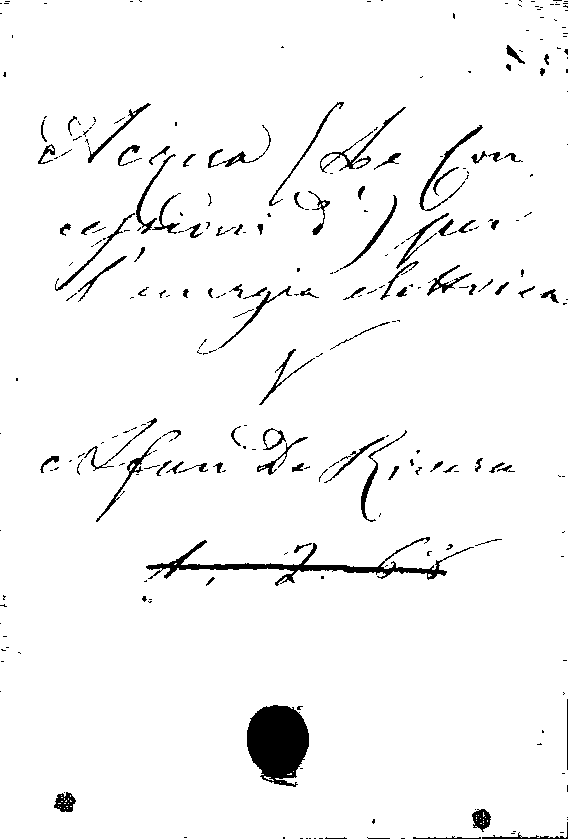 Acqua (Le Con
cessioni d') per
l'energia elettrica
V
Afan De Rivera
1, 2. 68